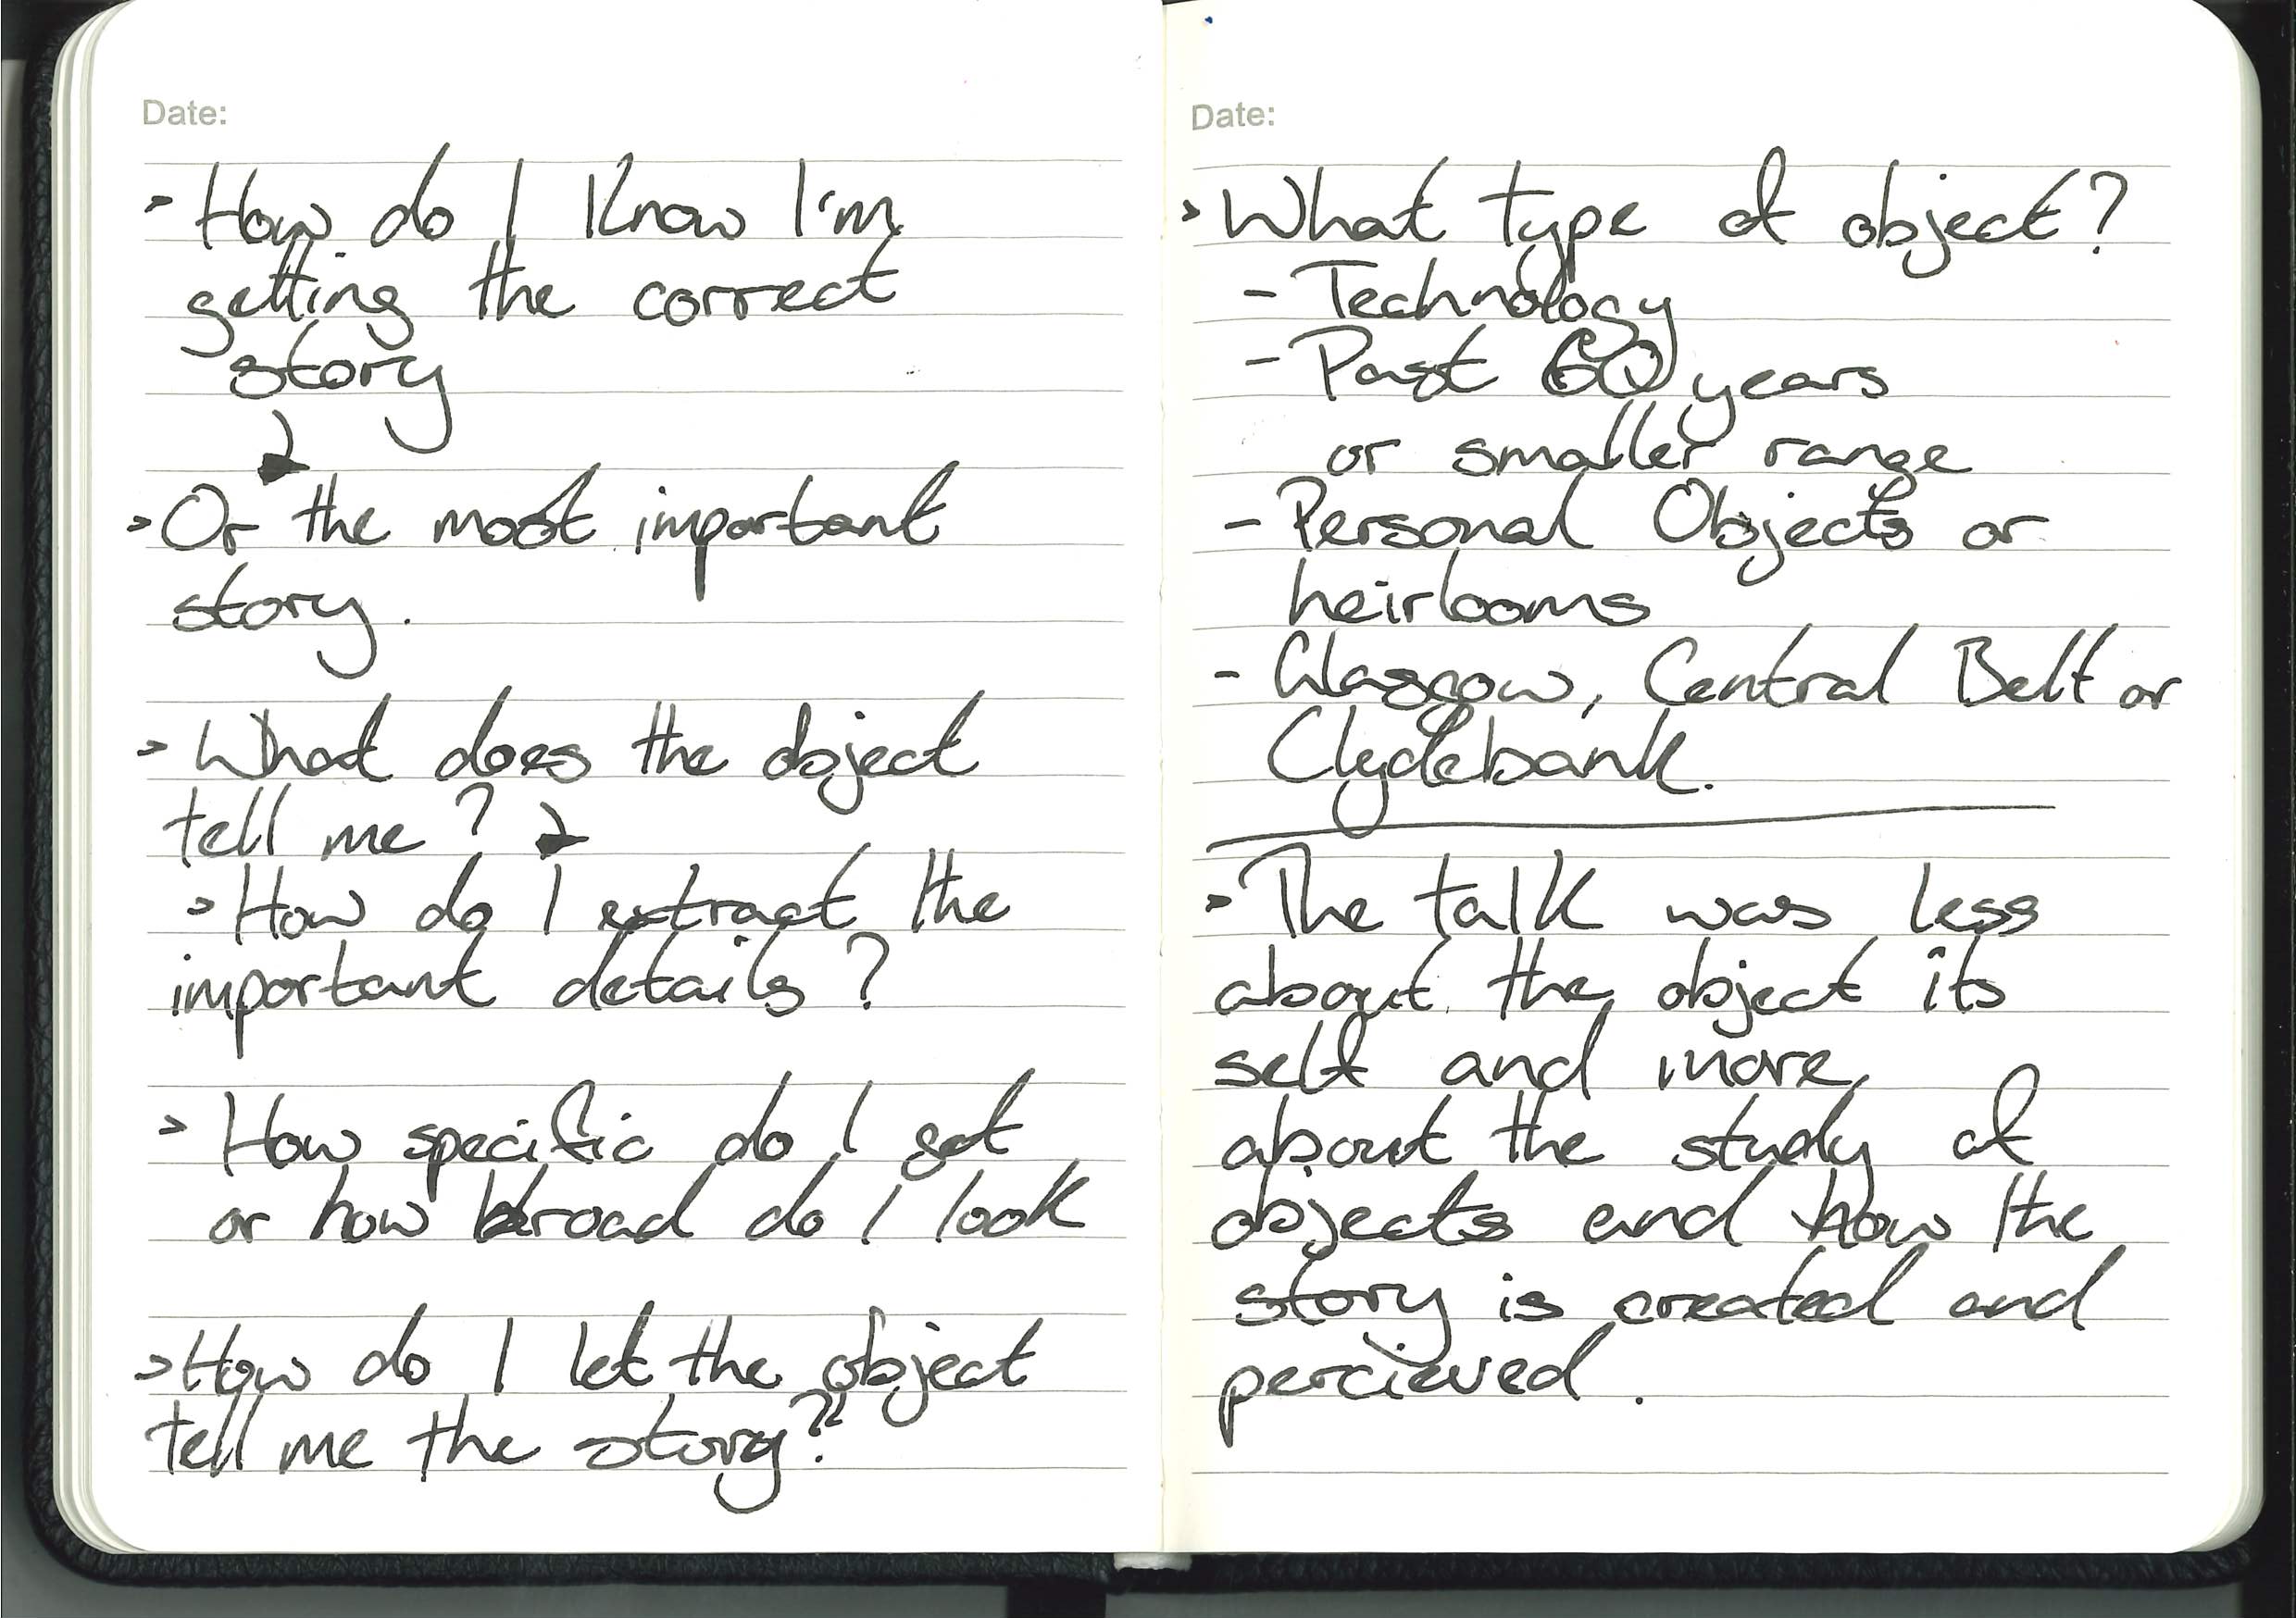 Date:
> How do I Know I'm
getting the correct
story
> Or the most important
story.
> What does the object
tell me?
> How do I extract the
important details?
> How specific do I get
or how broad do I look
> How do I let the object
tell me the story?
Date:
> What type of object?
- Technology
- Past 60 years
or smaller range
- Personal Objects or
heirlooms
- Glasgow, Central Belt or
Clydebank.
> The talk was less
about the object its
self and more
about the study of
objects and how the
story is created and
percieved.